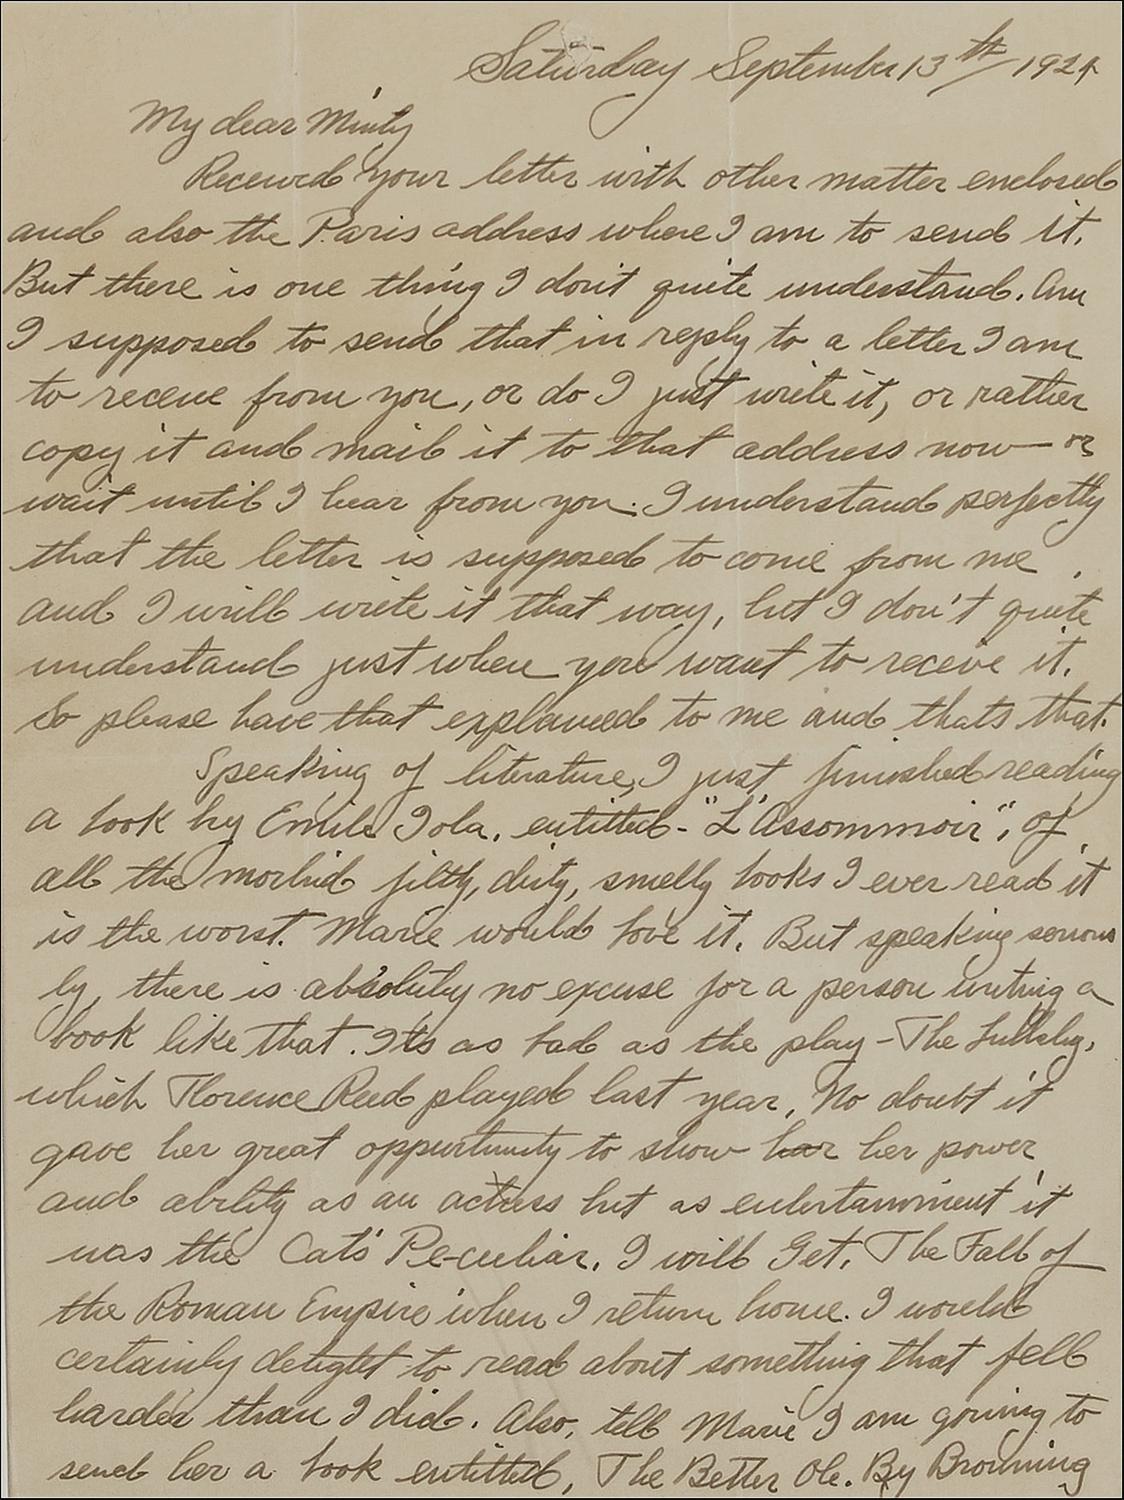 Saturday September 13th 1924
My dear Minty
Received your letter with other matter enclosed
and also the Paris address where I am to send it.
But there is one thing I don't quite understand. Am
I supposed to send that in reply to a letter I am
to receive from you, or do I just write it, or rather
copy it and mail it to that address now— or
wait until I hear from you. I understand perfectly
that the letter is supposed to come from me
and I will write it that way, but I don't quite
understand just when you want to receive it.
So please have that explained to me and thats that.
Speaking of literature, I just finished reading
a book by Emile Zola, entitled - "L'Assommoir", Of
all the morbid filthy, dirty, smelly books I ever read it
is the worst. Marie would love it. But speaking serious
ly, there is absolutely no excuse for a person writing a
book like that. Its as bad as the play - The Lullaby,
which Florence Reed played last year. No doubt it
gave her great opportunity to show her her power
and ability as an actress but as entertainment it
was the Cat's Pe-culiar. I will Get. The Fall of
the Roman Empire when I return home. I would
certainly delight to read about something that fell
harder than I did. Also, tell Marie I am going to
send her a book entitled, The Better Ole. By Browning